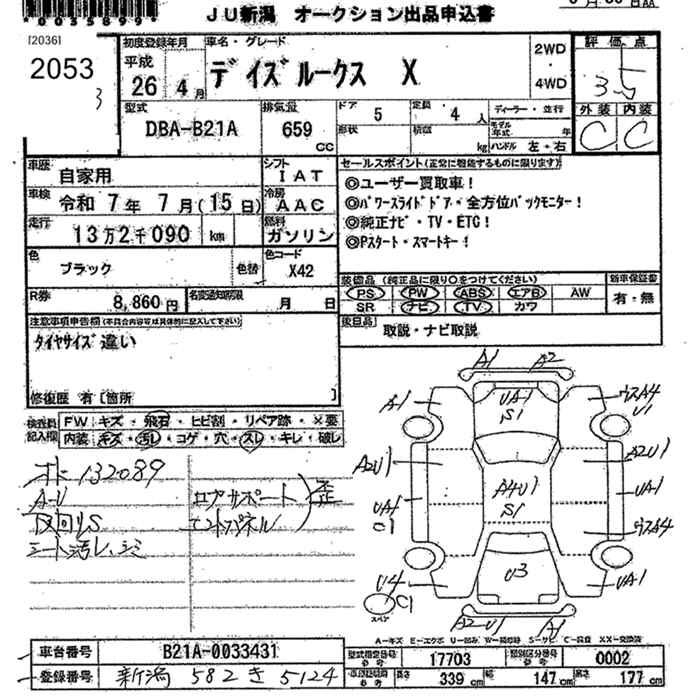 *0035899*
JU新潟 オークション出品申込書
[2036]
2053
3
初度登録年月 車名・グレード
平成
26年 4月
デイズルークス X
2WD
・
4WD
評価点
3.5
型式
DBA-B21A
排気量
659
CC
ドア
5
定員
4人
形状
積載
kg
ディーラー・並行
モデル年式 年
ハンドル 左・右
外装 内装
C C
車歴
自家用
シフト
IAT
車検
令和 7年 7月(15日)
冷房
AAC
走行
13万2千090 km
燃料
ガソリン
色
ブラック
色替
色コード
X42
R券
8,860円
名変通知期限
月 日
セールスポイント(正常に機能するものに限ります)
◎ユーザー買取車!
◎パワースライドドア・全方位バックモニター!
◎純正ナビ・TV・ETC!
◎Pスタート・スマートキー!
装備品(純正品に限り○をつけてください)
PS PW ABS エアB AW
SR ナビ TV カワ
新車保証書
有・無
後日品
取説・ナビ取説
注意事項申告欄(不具合内容等は具体的に記入して下さい)
タイヤサイズ違い
修復歴 有[箇所 ]
検査員記入欄
FW キズ・飛石・ヒビ割・リペア跡・X要
内装 キズ・汚レ・コゲ・穴・スレ・キレ・破レ
オト 132089
A-U
下回リS
シート汚レ、シミ
ロアサポート
エンドパネル
歪
A1 A2
A1
UA1
S1
ウスA4
U1
A2U1
A2U1
UA1
C1
A4U1
S1
UA1
ウスA4
U4
C1
U3
UA1
A2-U1
A1
スペア
A-キズ E-エクボ U-凹み W-補修跡 S-サビ C-腐食 XX-交換済
車台番号
B21A-0033431
登録番号
新潟 582 き 5124
型式指定番号 参考
17703
類別区分番号 参考
0002
車両諸元 参考
長さ 339cm
幅 147cm
高さ 177cm